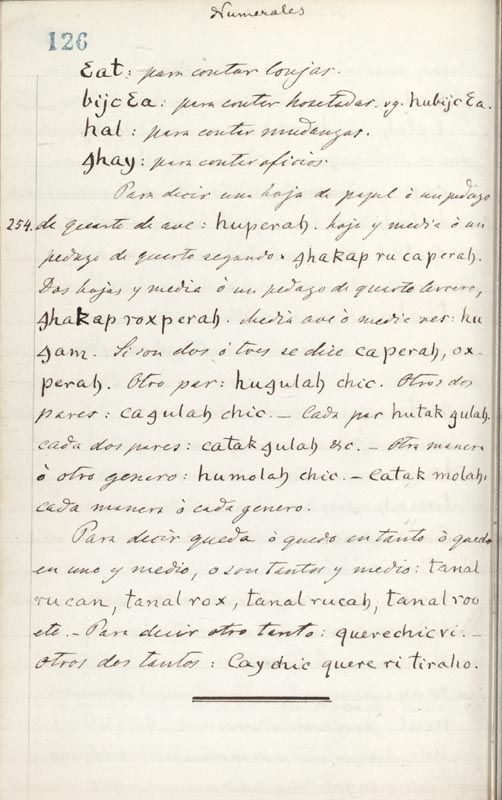 Numerales
126
Ɛat: para contar lonjas.
bijcƐa: para contar bocadas. vg. hubijcƐa.
hal: para contar mudanzas.
ghay: para contar oficios.
Para decir una hoja de papel ò un pedazo
254. de quarto de ave: huperah. hoja y media ò un
pedazo de quarto segundo. ghakap ru caperah.
Dos hojas y media ò un pedazo de quarto tercero,
ghakap roxperah. Media ave ò media res: hu
gam. Si son dos ó tres se dice caperah, ox-
perah. Otro par: hugulah chic. Otros dos
pares: cagulah chic. – Cada par hutak gulah.
cada dos pares: catak gulah &c. – Otra manera
ò otro genero: humolah chic. – catak molah.
cada manera ò cada genero.
Para decir queda ò quedo en tanto ò quedo
en uno y medio, o son tantos y medio: tanal
rucan, tanal rox, tanal rucah, tanal roo
etc. – Para decir otro tanto: querechicri. –
otros dos tantos: Cay chic quere ri tiraho.